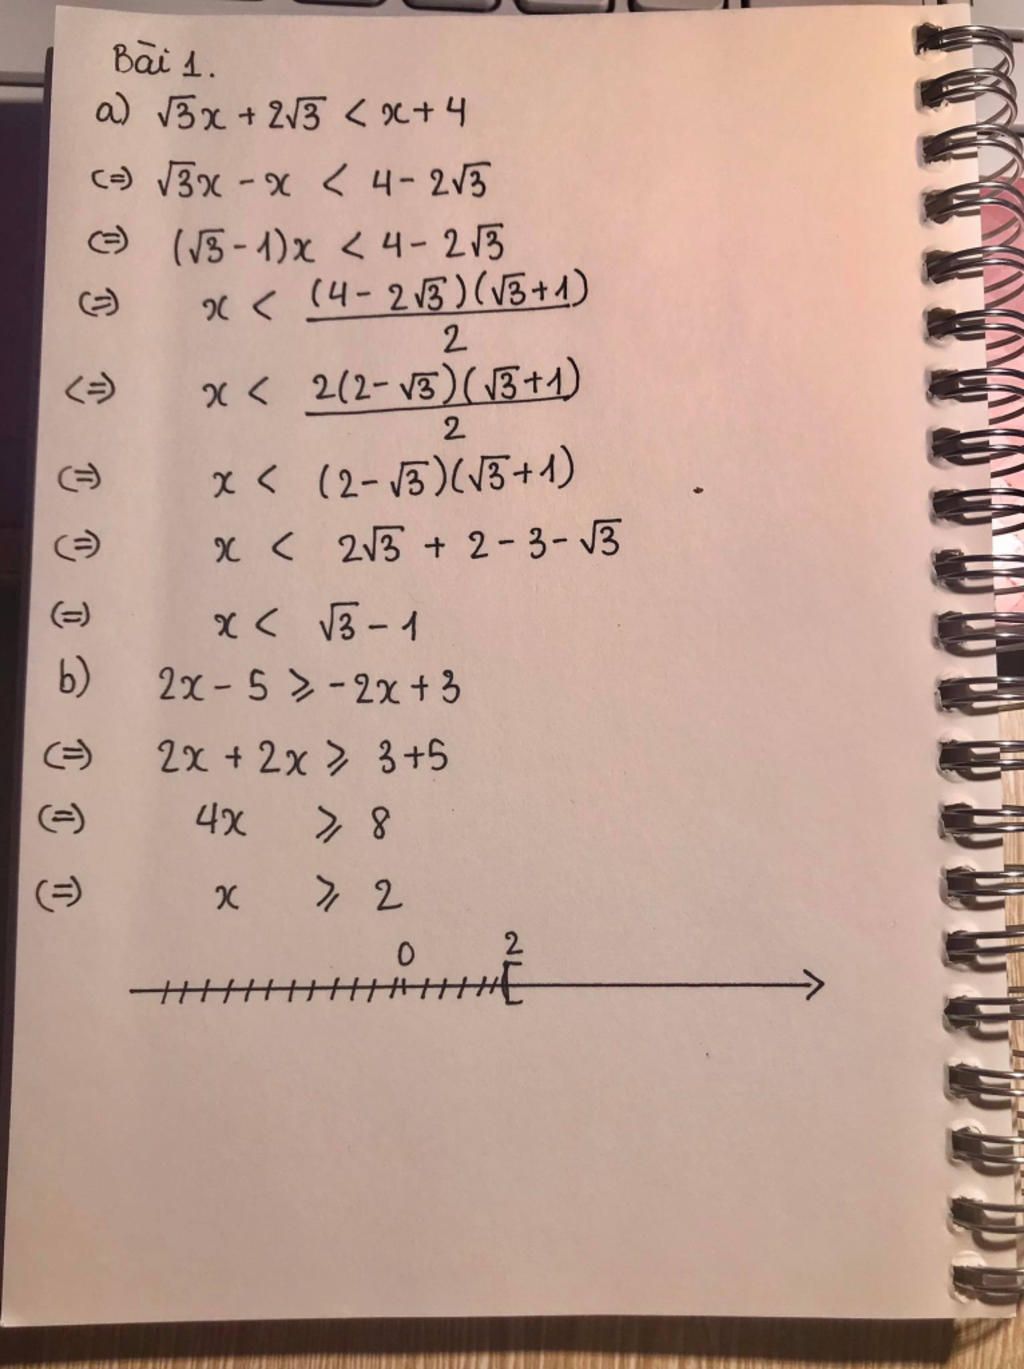 Bài 1.
a) √3x + 2√3 < x + 4
<=> √3x - x < 4 - 2√3
<=> (√3 - 1)x < 4 - 2√3
<=> x < (4 - 2√3)(√3+1) / 2
<=> x < 2(2-√3)(√3+1) / 2
<=> x < (2-√3)(√3+1)
<=> x < 2√3 + 2 - 3 - √3
(=) x < √3 - 1
b) 2x - 5 ⩾ -2x + 3
<=> 2x + 2x ⩾ 3+5
(=) 4x ⩾ 8
(=) x ⩾ 2
0 2
[